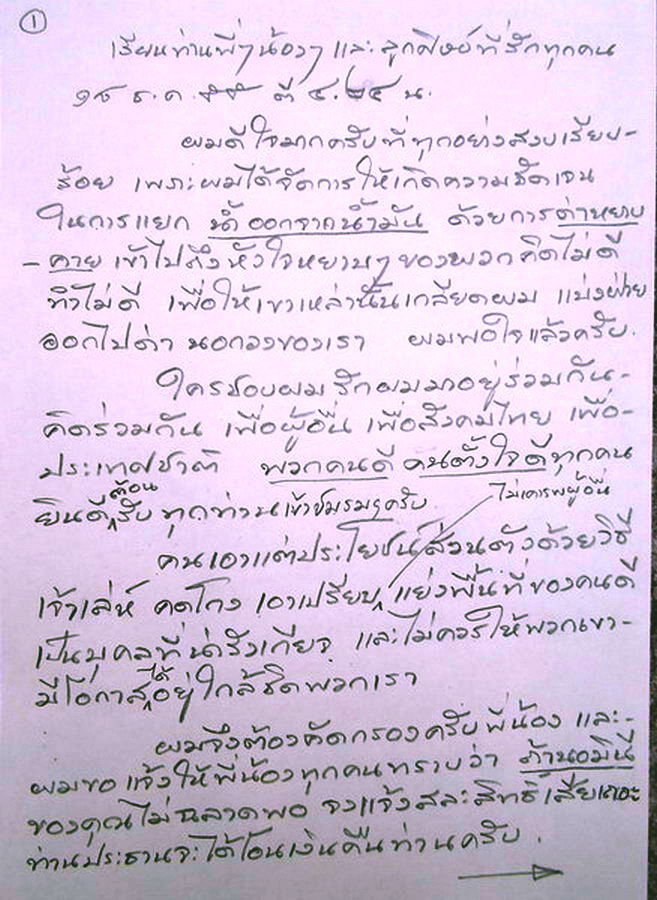 ①
เรียนท่านพี่ๆน้องๆ และ ลูกศิษย์ที่รักทุกคน
๑๘ ธ.ค. ๕๕ ตี ๔.๒๕ น.
ผมดีใจมากครับที่ทุกอย่างสงบเรียบ-
ร้อย เพราะผมได้จัดการให้เกิดความชัดเจน
ในการแยก น้ำออกจากน้ำมัน ด้วยการด่าหยาบ
-คาย เข้าไปถึงหัวใจหยาบๆ ของพวกคิดไม่ดี
ทำไม่ดี เพื่อให้เขาเหล่านั้นเกลียดผม แบ่งฝ่าย
ออกไปด่า นอกวงของเรา ผมพอใจแล้วครับ.
ใครชอบผม รักผมมาอยู่ร่วมกัน-
คิดร่วมกัน เพื่อผู้อื่น เพื่อสังคมไทย เพื่อ-
ประเทศชาติ พวกคนดี คนตั้งใจดีทุกคน
ยินดีต้อนรับ ทุกท่านเข้าชมรมๆครับ
ไม่เคารพผู้อื่น
คนเอาแต่ประโยชน์ส่วนตัวด้วยวิธี
เจ้าเล่ห์ คดโกง เอาเปรียบ แย่งพื้นที่ของคนดี
เป็นบุคลที่น่ารังเกียจ และไม่ควรให้พวกเขา-
มีโอกาสได้อยู่ใกล้ชิดพวกเรา
ผมจึงต้องคัดกรองครับพี่น้อง และ-
ผมขอแจ้งให้พี่น้องทุกคนทราบว่า ถ้านอมินี
ของคุณไม่ฉลาดพอ จงแจ้งสละสิทธิ์เสียเถอะ
ท่านประธานจะได้โอนเงินคืนท่านครับ.